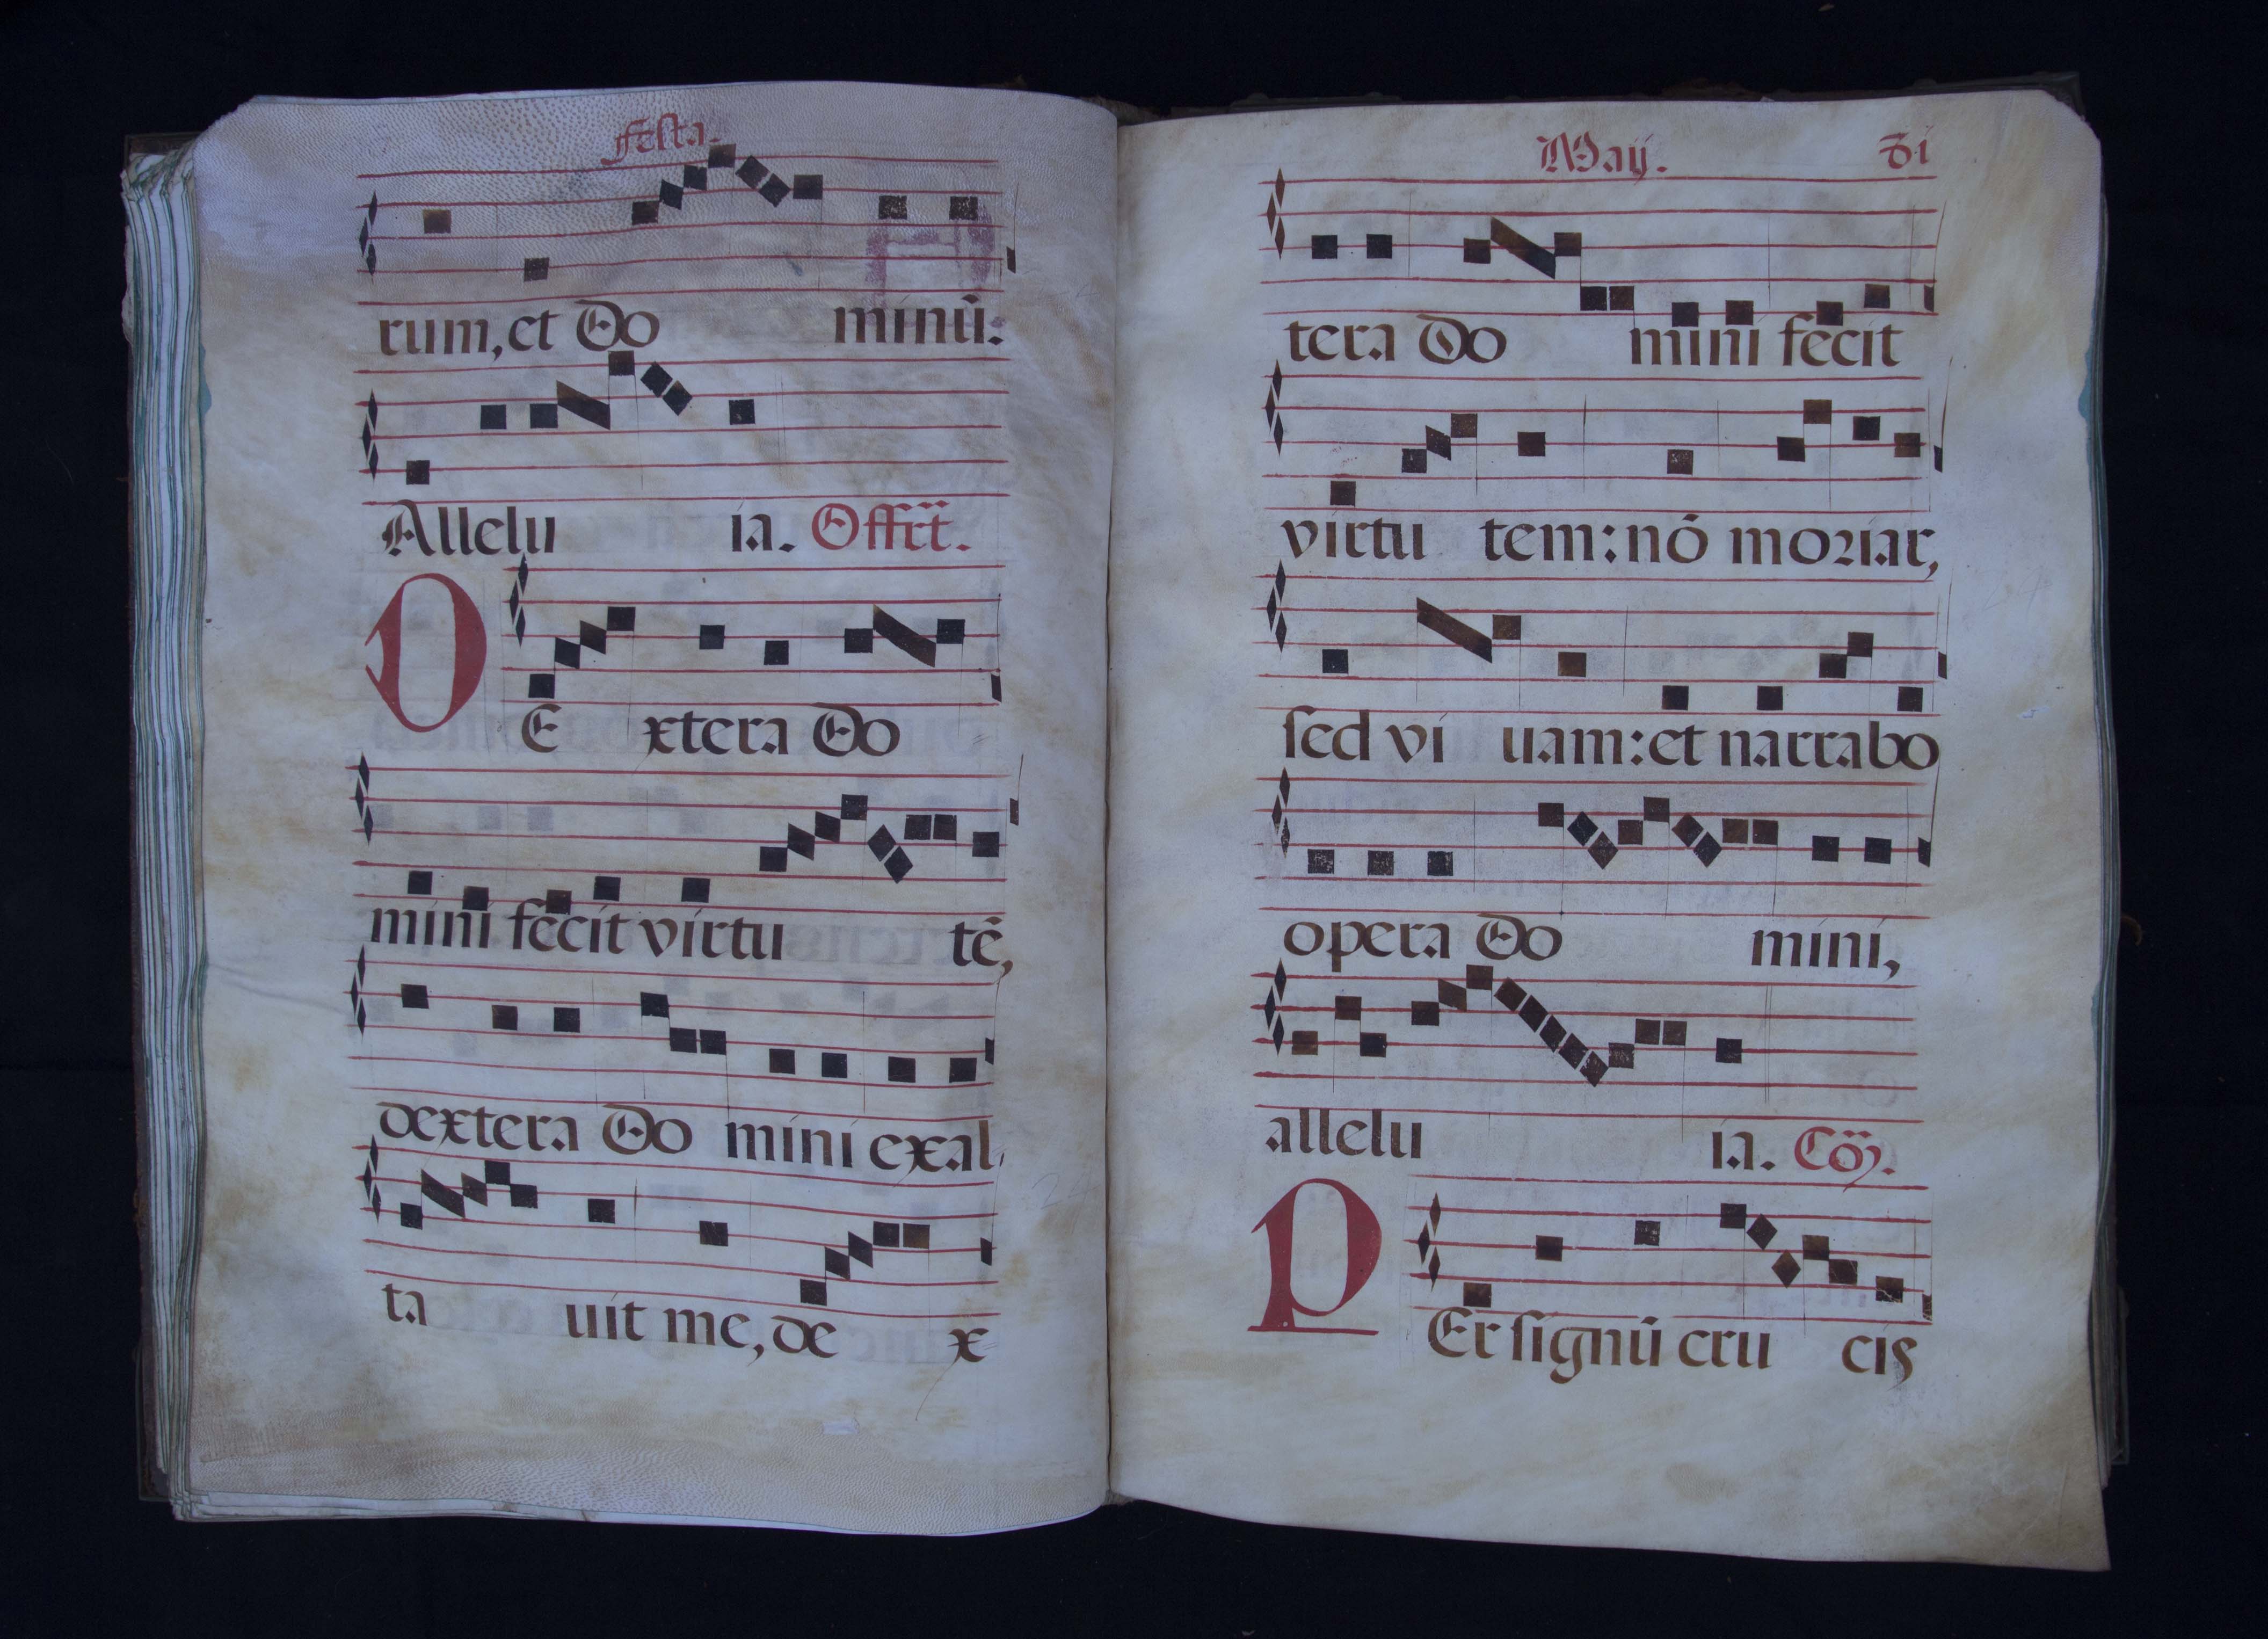 festa.
rum, et Do minū:
Allelu ia. Offrt.
DE xtera Do
mini fecit virtu tē,
dextera Do mini exal-
ta uit me, de x
May.
tera Do mini fecit
virtu tem: nō moriar,
sed vi uam: et narrabo
opera Do mini,
allelu ia. Cōȝ.
PEr signū cru cis